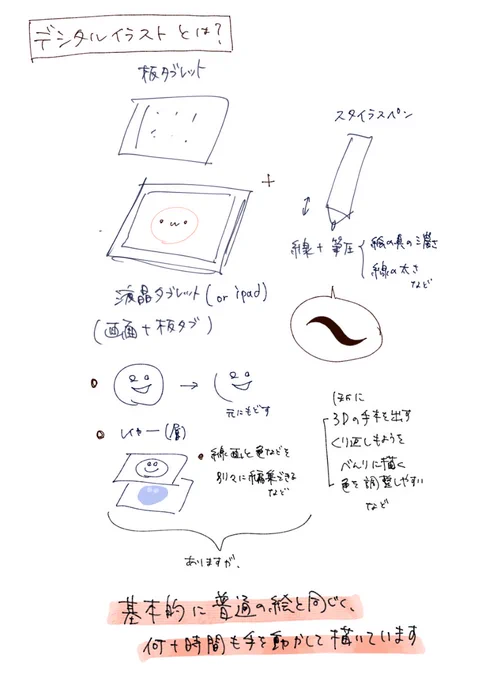 デジタルイラストとは?
板タブレット
スタイラスペン
+
線+筆圧
絵の具の濃さ
線の太さ
など
液晶タブレット(or ipad)
(画面+板タブ)
→
元にもどす
レイヤー(層)
線画と色などを
別々に編集できる
など
ほかに
3Dの手本を出す
くり返しもようを
べんりに描く
色を調整しやすい
など
ありますが、
基本的に普通の絵と同じく、
何十時間も手を動かして描いています